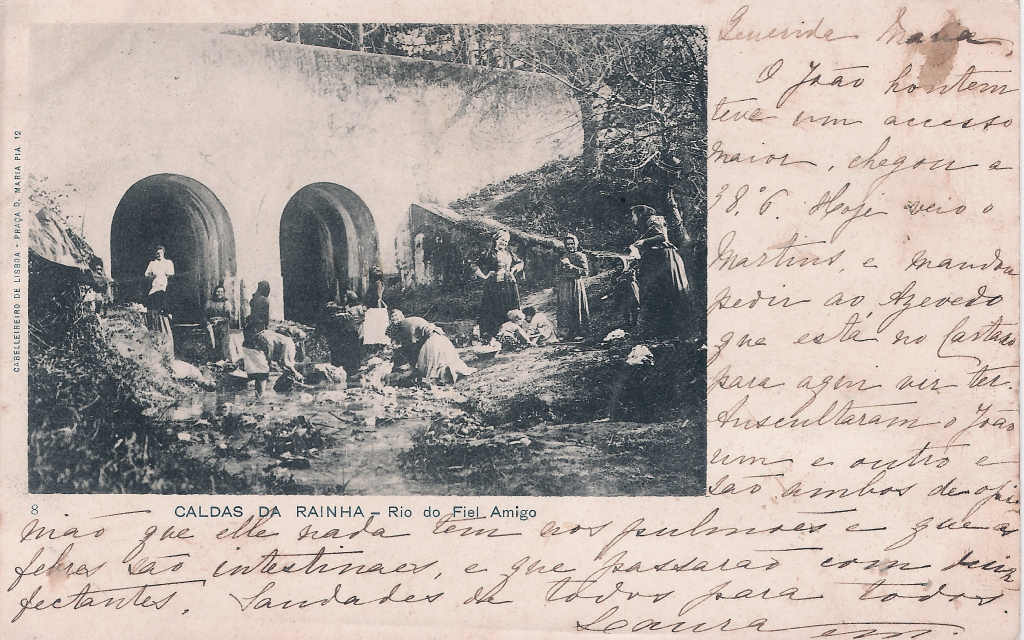 CABELLEIREIRO DE LISBOA - PRAÇA D. MARIA PIA 12
Querida Maria,
O João hontem
teve um accesso
maior, chegou a
38,°6. Hoje veio o
Martins, e mandou
pedir ao Azevedo
que está no Cartaxo
para aqui vir ter.
Auscultaram o João
um e outro e
são ambos de opi-
8 CALDAS DA RAINHA – Rio do Fiel Amigo
nião que elle nada tem nos pulmões e que as
febres são intestinaes, e que passarão com desin-
fectantes. Saudades de todos para todos.
Laura